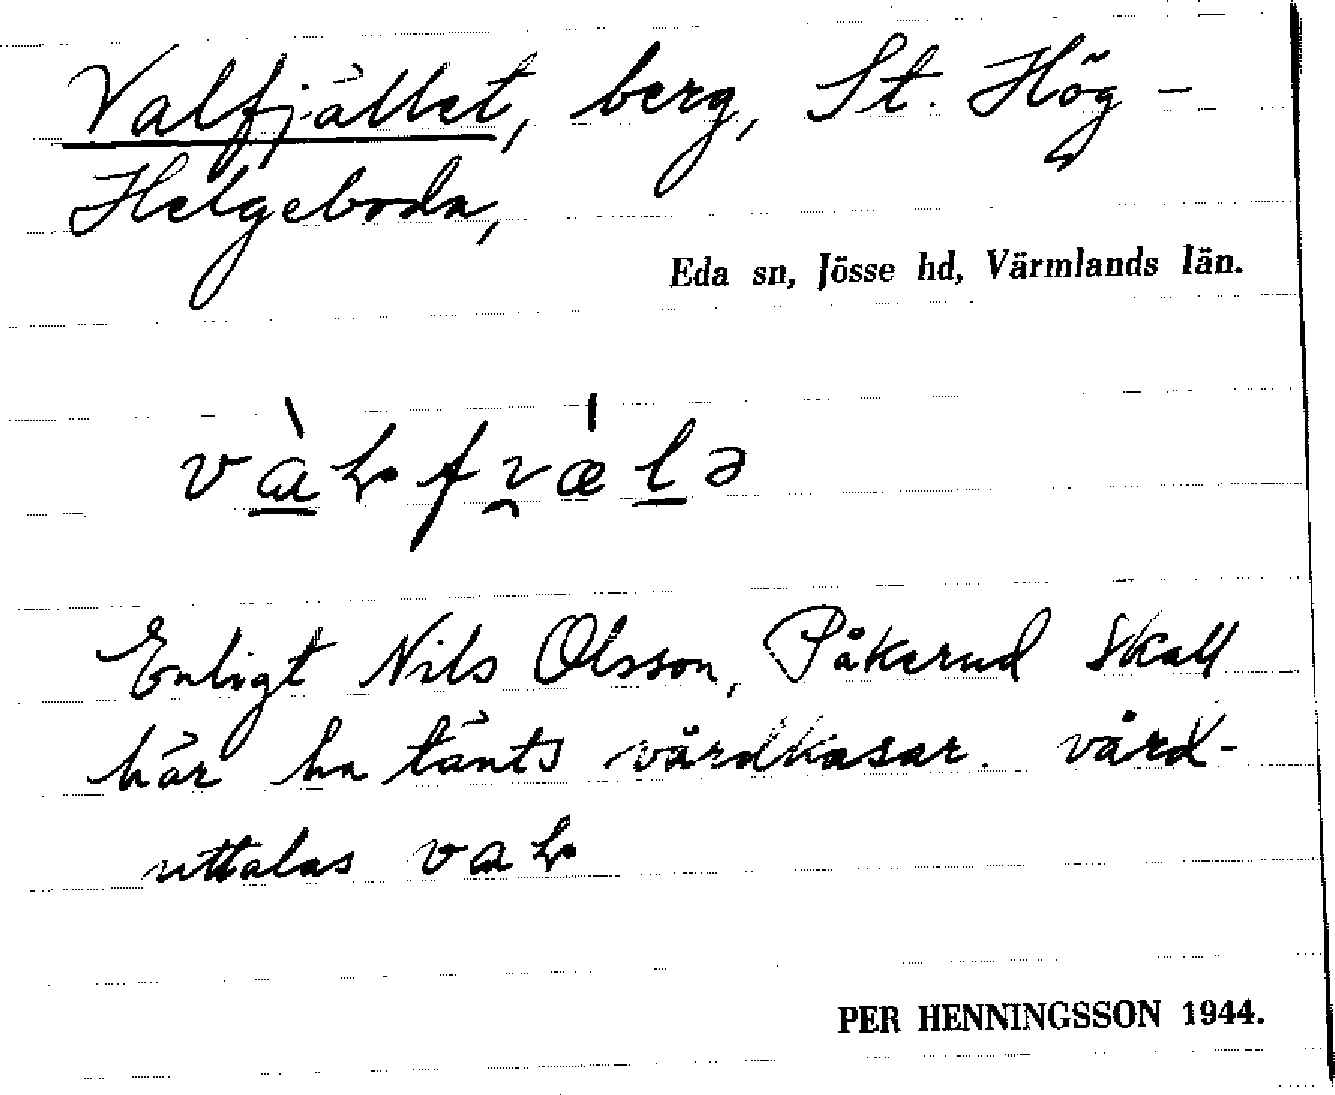 Valfjället, berg, St. Hög-
Helgeboda,
Eda sn, Jösse hd, Värmlands län.
Enligt Nils Olsson, Påkerud skall
här ha tänts vårdkasar. vård-
uttalas
PER HENNINGSSON 1944.